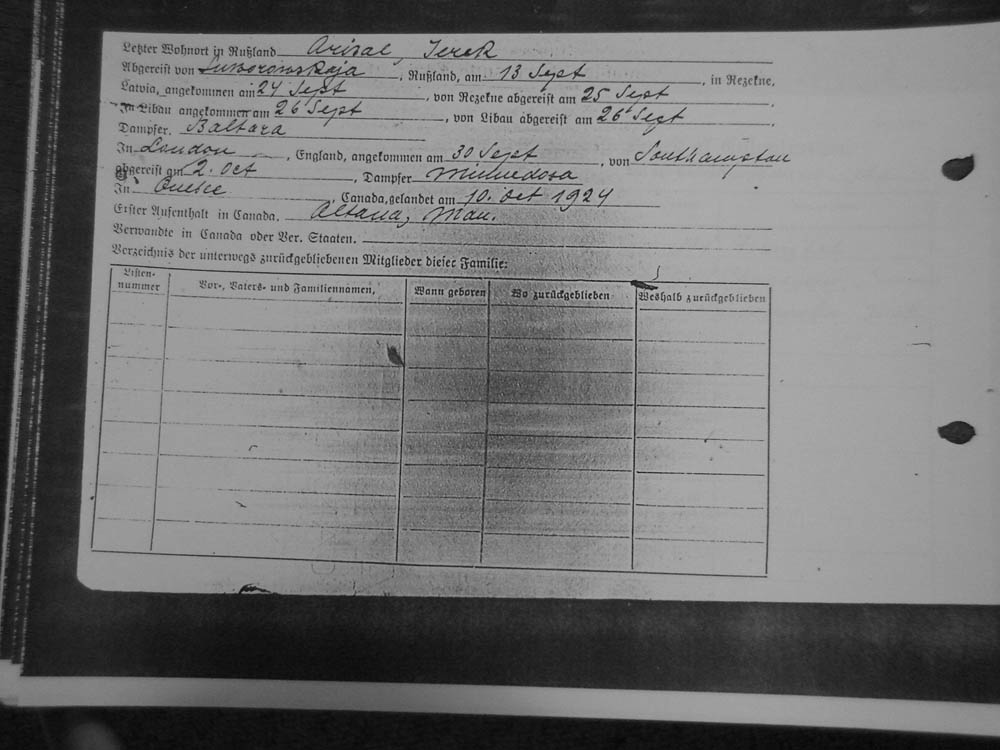 Letzter Wohnort in Rußland Arival, Terek
Abgereist von Suworowskaja, Rußland, am 13 Sept, in Rezekne,
Latvia, angekommen am 24 Sept, von Rezekne abgereist am 25 Sept,
In Libau angekommen am 26 Sept, von Libau abgereist am 26 Sept,
Dampfer, Baltara
In London, England, angekommen am 30 Sept, von Southampton
abgereist am 2. Oct, Dampfer Minnedosa
In Quebec, Canada, gelandet am 10. Oct 1924
Erster Aufenthalt in Canada, Altona, Man.
Verwandte in Canada oder Ver. Staaten.
Verzeichnis der unterwegs zurückgebliebenen Mitglieder dieser Familie:
Listen-
nummer
Vor-, Vaters- und Familiennamen,
Wann geboren
Wo zurückgeblieben
Weshalb zurückgeblieben